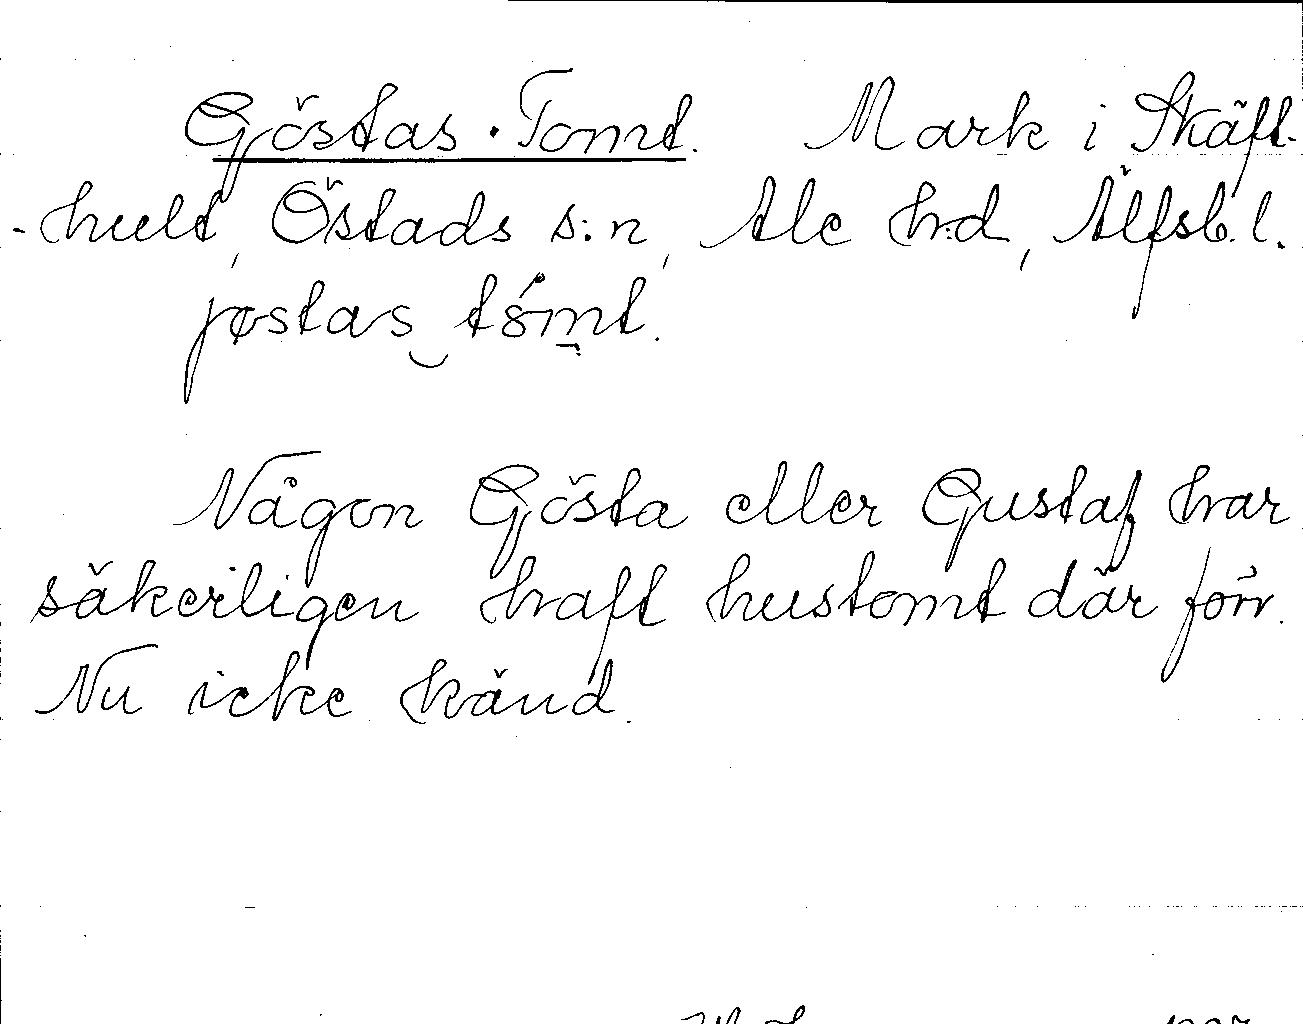 Göstas Tomt. Mark i Skäft-
-hult, Östads s:n, Ale hd, Älfsb. l.
jøstas tómt.
Någon Gösta eller Gustaf har
säkerligen haft hustomt där förr.
Nu icke känd.